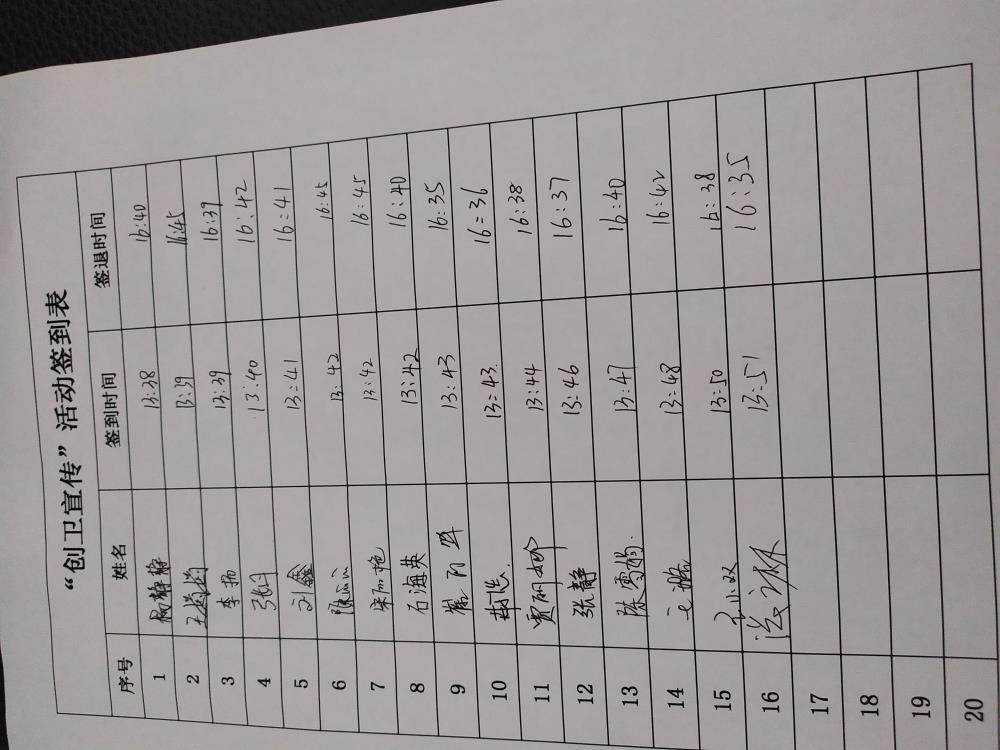 “创卫宣传”活动签到表
序号 姓名 签到时间 签退时间
1 杨静静 13:38 16:40
2 13:39 16:45
3 李扬 13:39 16:39
4 13:40 16:42
5 刘鑫 13:41 16:41
6 13:42 16:45
7 13:42 16:45
8 石海英 13:42 16:40
9 13:43 16:35
10 13:43 16:36
11 贾丽娜 13:44 16:38
12 张静 13:46 16:37
13 陈雪娟 13:47 16:40
14 13:48 16:42
15 王小双 13:50 16:38
16 13:51 16:35
17
18
19
20